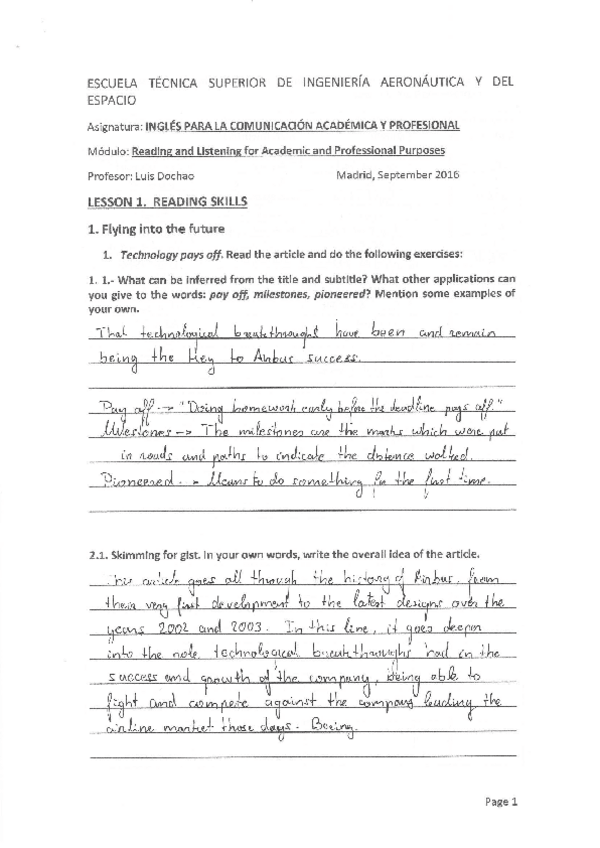 ESCUELA TÉCNICA SUPERIOR DE INGENIERÍA AERONÁUTICA Y DEL
ESPACIO
Asignatura: INGLÉS PARA LA COMUNICACIÓN ACADÉMICA Y PROFESIONAL
Módulo: Reading and Listening for Academic and Professional Purposes
Profesor: Luis Dochao Madrid, September 2016
LESSON 1. READING SKILLS
1. Flying into the future
1. Technology pays off. Read the article and do the following exercises:
1. 1.- What can be inferred from the title and subtitle? What other applications can
you give to the words: pay off, milestones, pioneered? Mention some examples of
your own.
That technological breakthought have been and remain
being the Key to Airbus success.
Pay off -> "Doing homework early before the deadline pays off."
Milestones -> The milestones are the marks which were put
in roads and paths to indicate the distance walked.
Pioneered. - Means to do something in the first time.
2.1. Skimming for gist. In your own words, write the overall idea of the article.
This article goes all through the history of Airbus, from
their very first development to the latest designs over the
years 2002 and 2003. In this line, it goes deeper
into the role technological breakthroughs had in the
success and growth of the company, being able to
fight and compete against the company leading the
airline market those days. Boeing.
Page 1